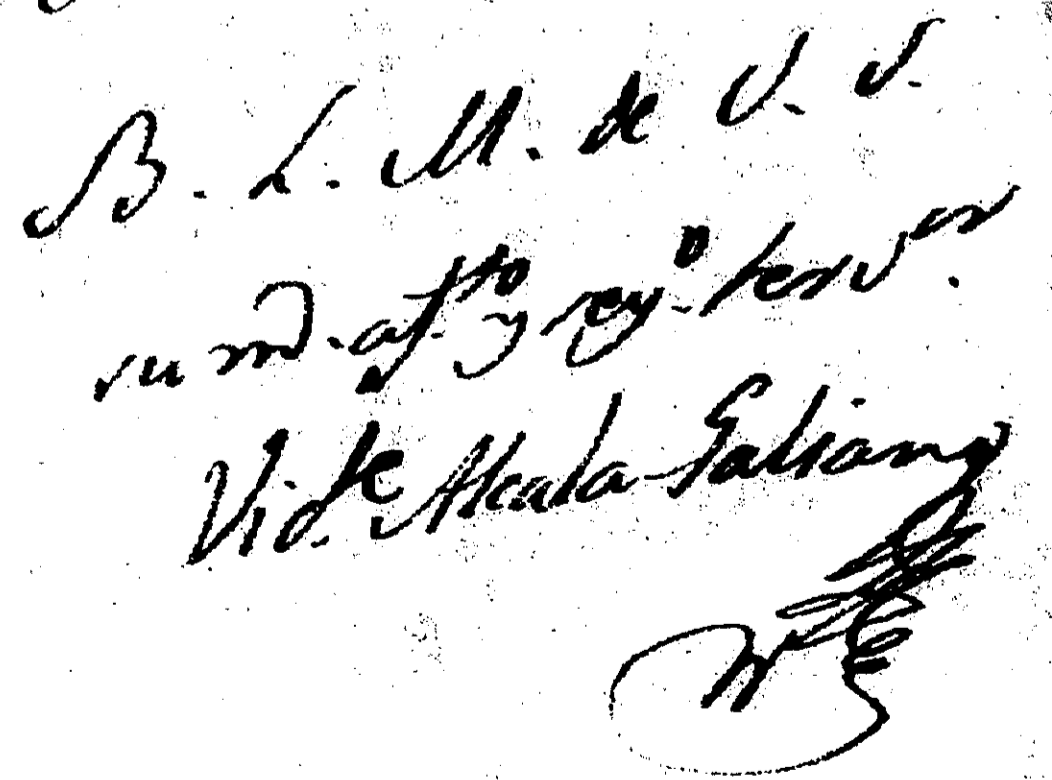 B. L. M. de V. S.
su m.or af.to y reg.o serv.or
Vic.te Alcala-Galiano